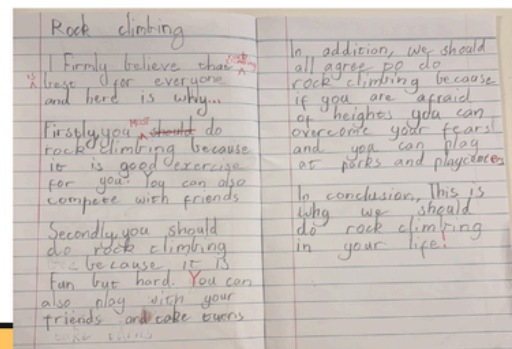 Rock climbing
I Firmly believe that rock climbing
is best for everyone
and here is why...
Firstly, you must should do
rock climbing because
it is good exercise
for you. You can also
compete with friends
Secondly, you should
do rock climbing
because it is
fun but hard. You can
also play with your
friends and take turns
In addition, we should
all agree to do
rock climbing because
if you are afraid
of heights you can
overcome your fears!
and you can play
at parks and playcentres
In conclusion, This is
why we should
do rock climbing
in your life!